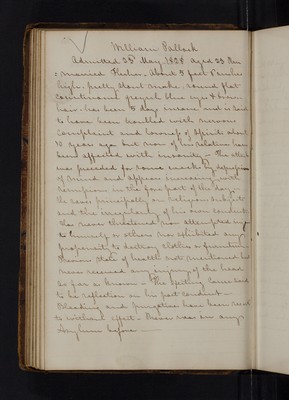 William Pallock
Admitted 28 May 1828 aged 23 Men
married Pedlar. About 5 feet 6 inches
high. pretty stout make. round flat
countenance. greyish blue eyes & brown
hair. has been 5 days insane. and is said
to have been troubled with nervous
complaint and lowness of Spirit about
10 years ago but none of his relations have
been affected with insanity. This attack
was preceded for some weeks by depression
of mind and appears increasing with
remissions in the fore part of the day.
He raves principally on religious subject
and the irregularity of his own conduct
He never threatened nor attempted inj
to himself or others nor exhibited any
propensity to destroy clothes or furniture
Previous state of health not mentioned but
never received any injury of the head
so far as known. The exciting cause said
to be reflection on his past conduct.
Bleeding and purgatives have been used
to without effect. Never was in any
Asylum before